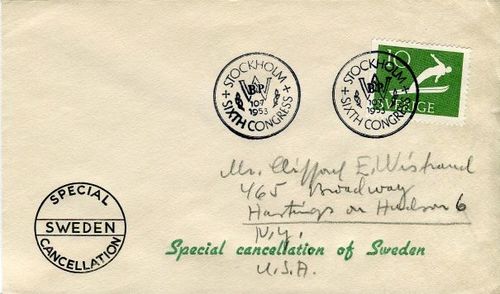 STOCKHOLM
W
B.P.
1953
+ SIXTH CONGRESS +
STOCKHOLM
W
B.P.
1953
+ SIXTH CONGRESS +
10
SVERIGE
Mr. Clifford E. Wistrand
465 Broadway
Hastings on Hudson 6
N.Y.
U.S.A.
SPECIAL
SWEDEN
CANCELLATION
Special cancellation of Sweden